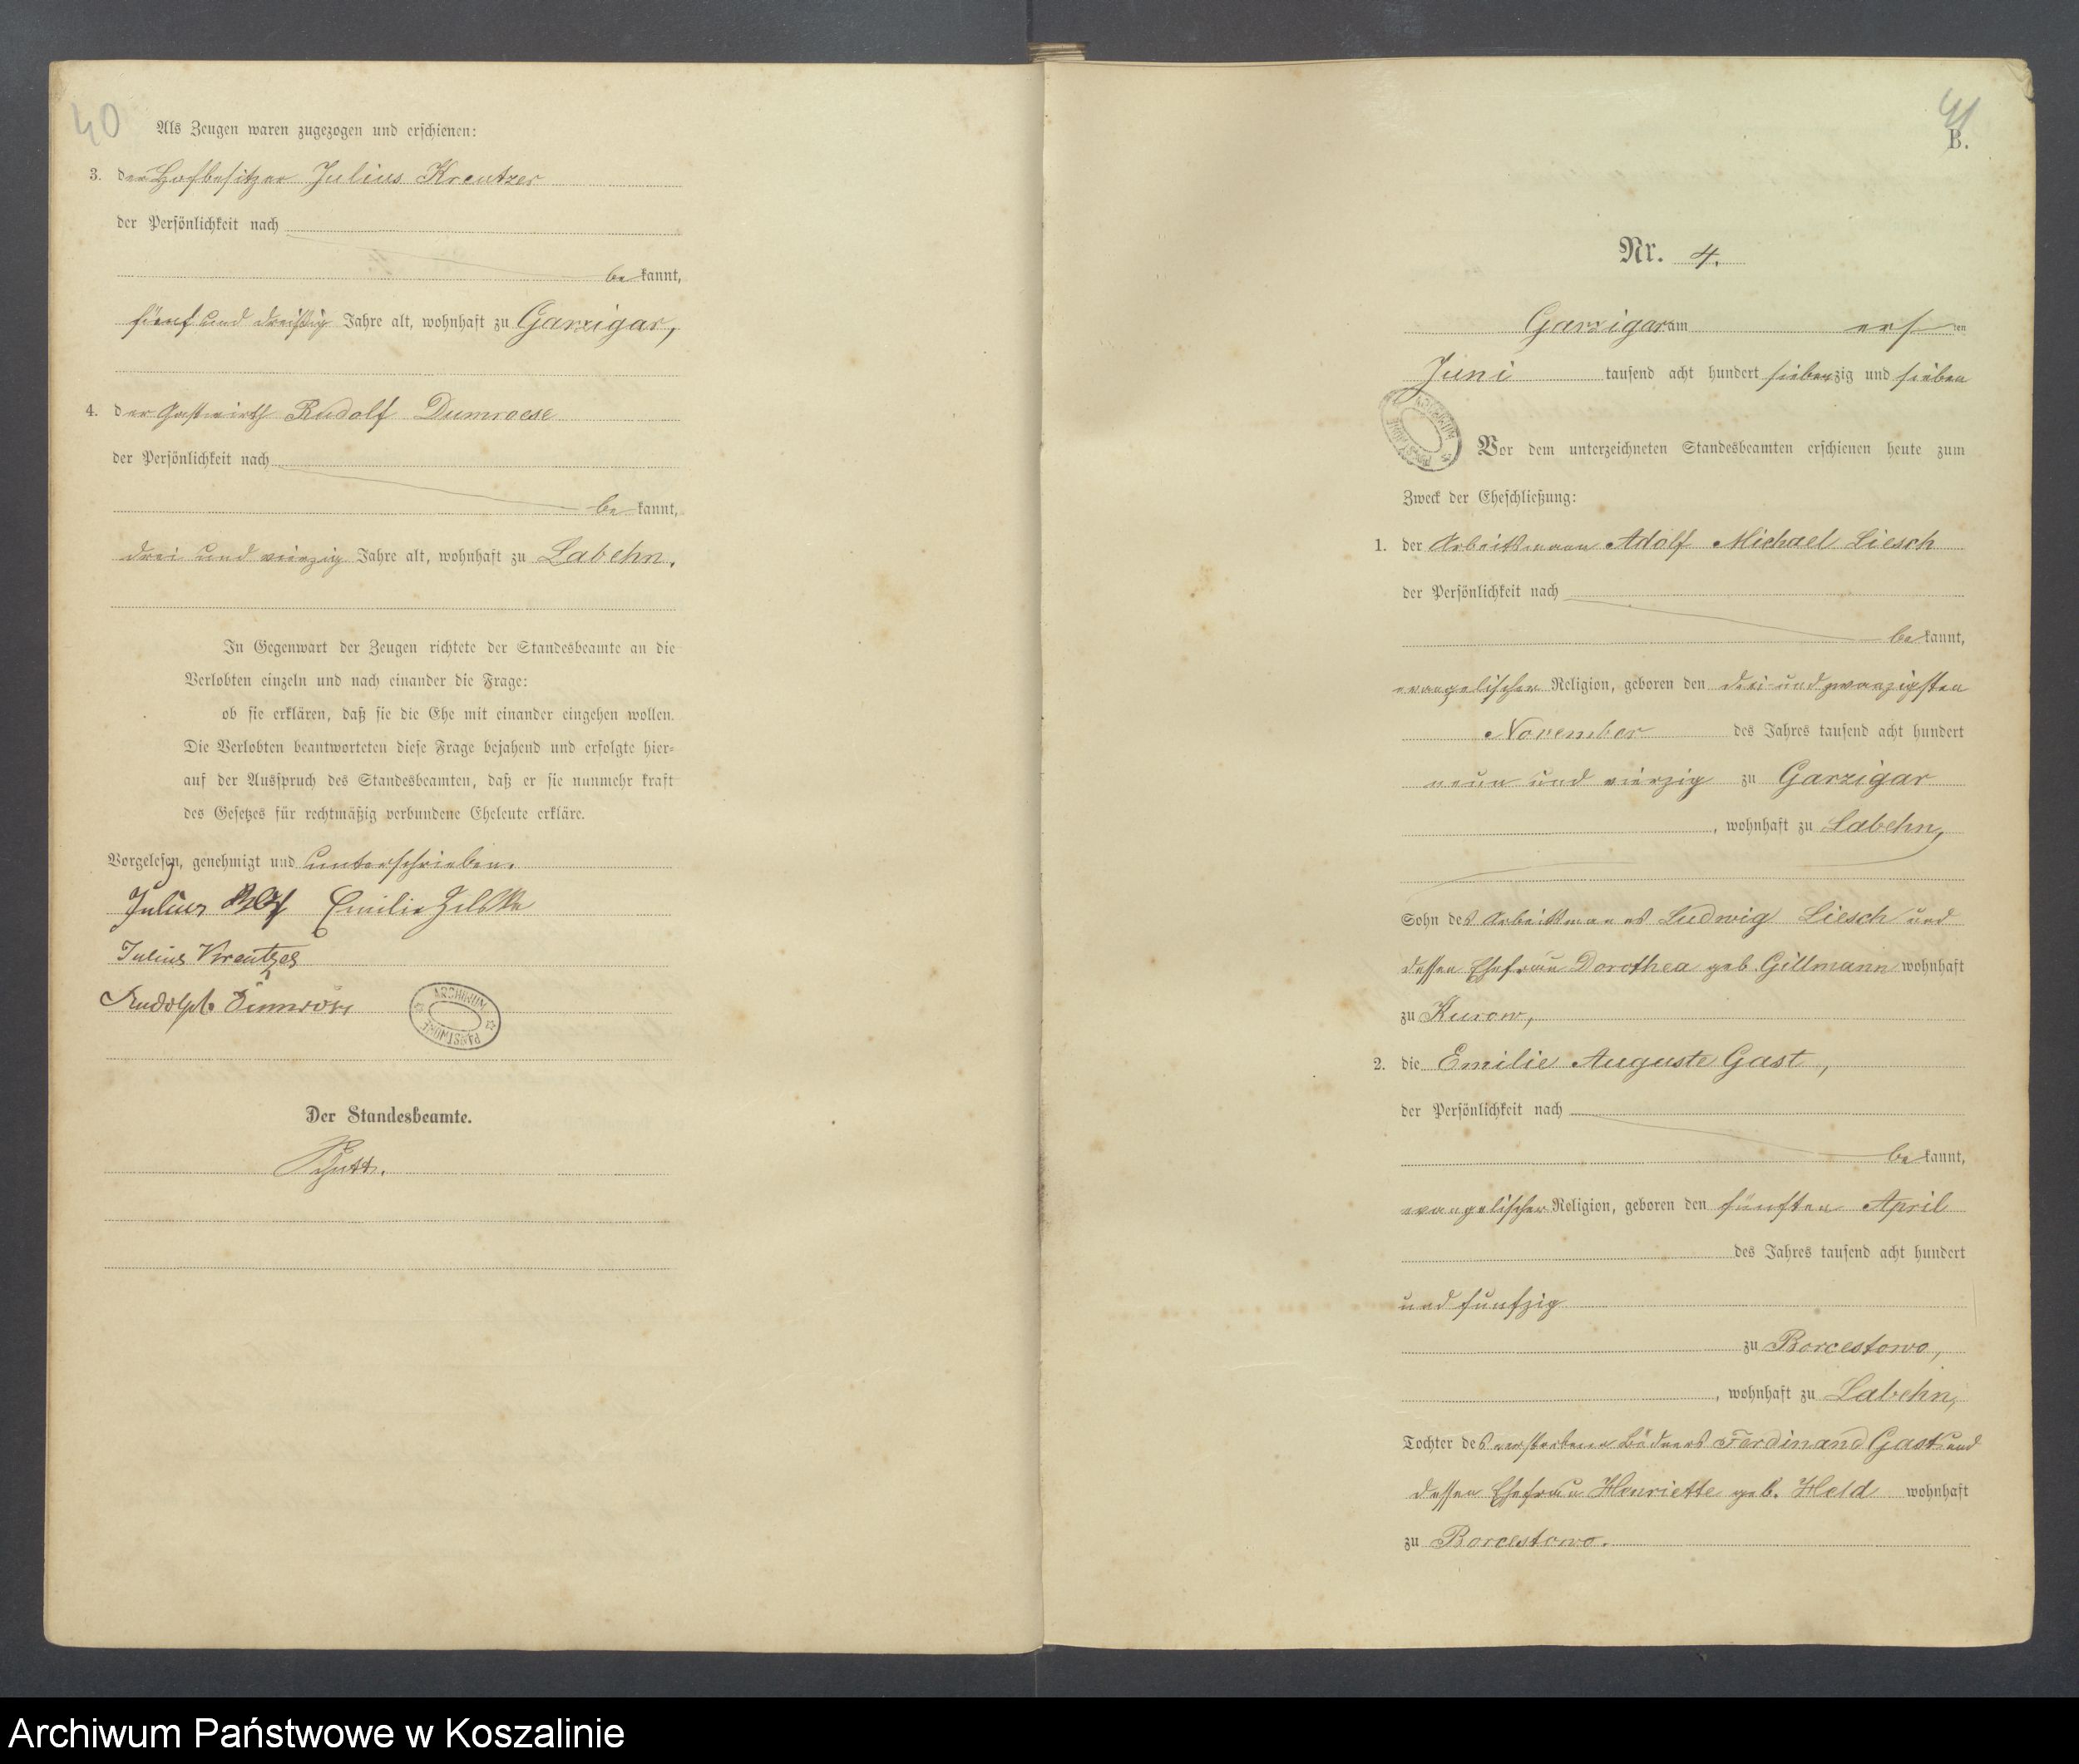 40
Als Zeugen waren zugezogen und erschienen:
3. der Hofbesitzer Julius Kreutzer
der Persönlichkeit nach
be kannt,
fünf und dreißig Jahre alt, wohnhaft zu Garzigar,
4. der Gastwirth Rudolf Dumroese
der Persönlichkeit nach
be kannt,
drei und vierzig Jahre alt, wohnhaft zu Labehn.
In Gegenwart der Zeugen richtete der Standesbeamte an die
Verlobten einzeln und nach einander die Frage:
ob sie erklären, daß sie die Ehe mit einander eingehen wollen.
Die Verlobten beantworteten diese Frage bejahend und erfolgte hier-
auf der Ausspruch des Standesbeamten, daß er sie nunmehr kraft
des Gesetzes für rechtmäßig verbundene Eheleute erkläre.
Vorgelesen, genehmigt und unterschrieben.
Julius Emilie
Julius Kreutzer
Rudolph Dumröse
ARCHIWUM PAŃSTWOWE
Der Standesbeamte.
41
B.
Nr. 4.
Garzigar am ersten
Juni tausend acht hundert siebenzig und sieben
ARCHIWUM PAŃSTWOWE
Vor dem unterzeichneten Standesbeamten erschienen heute zum
Zweck der Eheschließung:
1. der Arbeitsmann Adolf Michael Liesch
der Persönlichkeit nach
be kannt,
evangelischer Religion, geboren den drei und zwanzigsten
November des Jahres tausend acht hundert
neun und vierzig zu Garzigar
, wohnhaft zu Labehn,
Sohn des Arbeitsmanns Ludwig Liesch und
dessen Ehefrau Dorothea geb. Gillmann wohnhaft
zu Kurow,
2. die Emilie Auguste Gast,
der Persönlichkeit nach
be kannt,
evangelischer Religion, geboren den fünften April
des Jahres tausend acht hundert
und funfzig
zu Borcestowo,
, wohnhaft zu Labehn,
Tochter des verstorbenen Büdners Ferdinand Gast und
dessen Ehefrau Henriette geb. Held wohnhaft
zu Borcestowo.
Archiwum Państwowe w Koszalinie